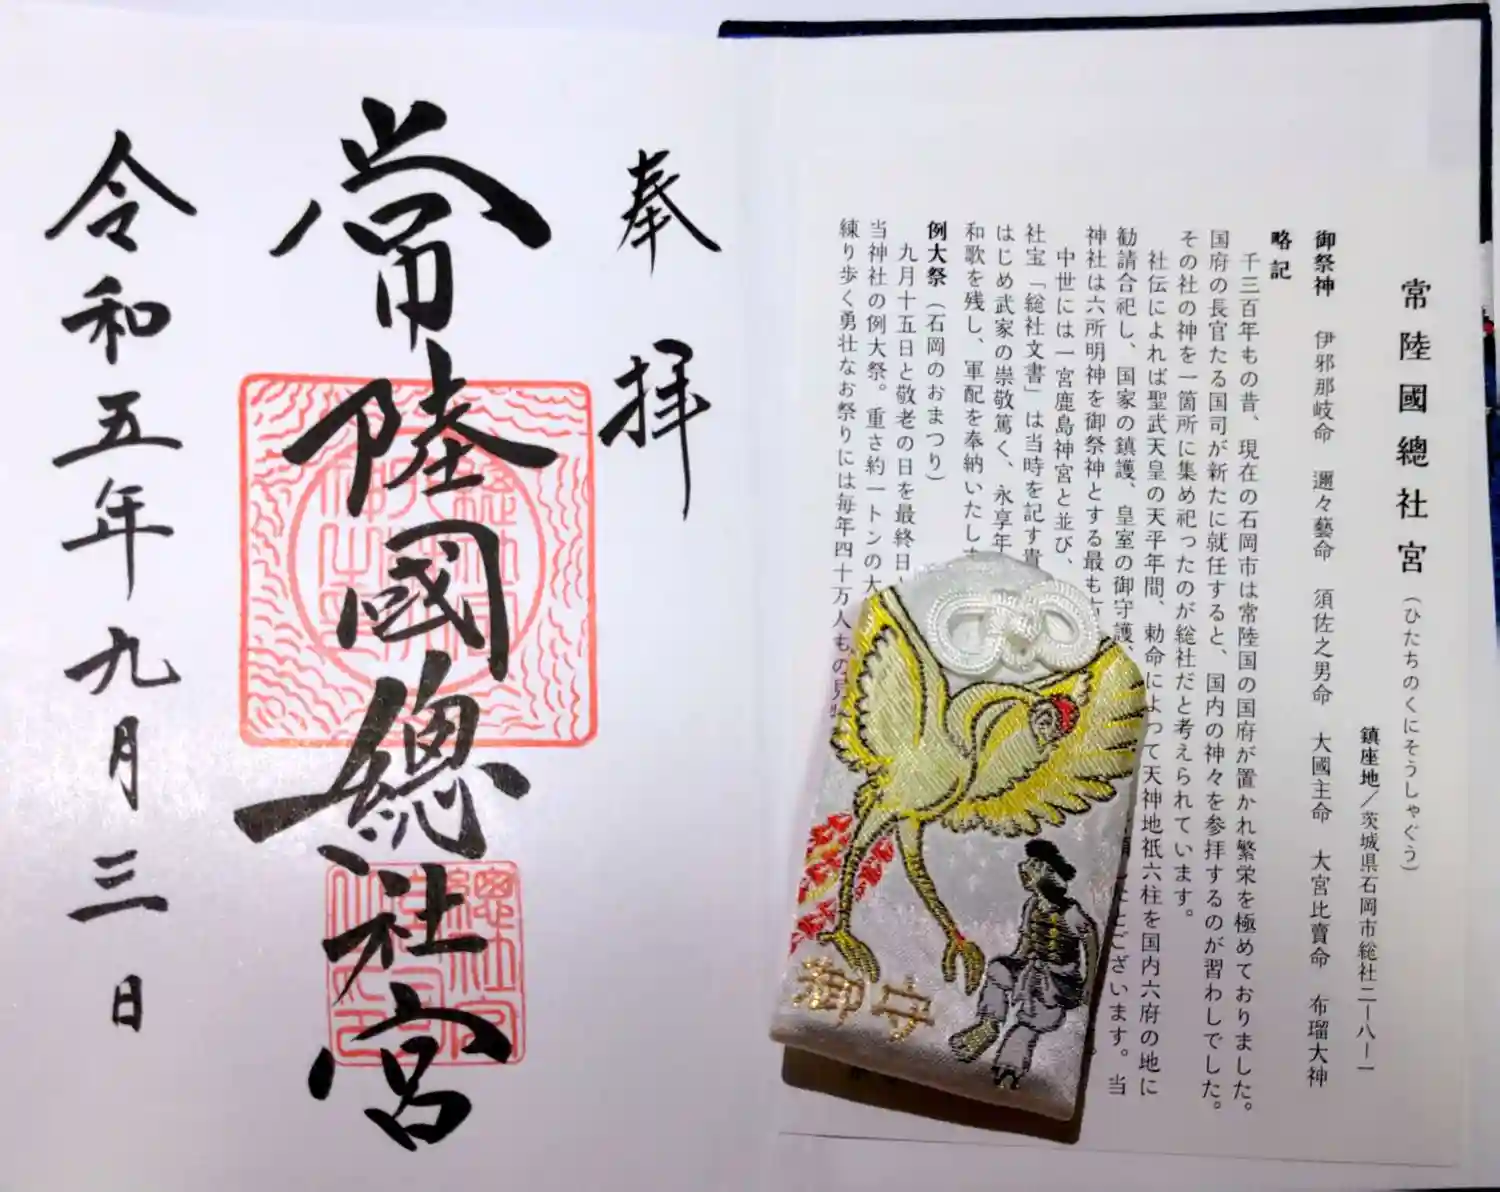 常陸國總社宮（ひたちのくにそうしゃぐう）
鎮座地／茨城県石岡市総社二ー八ー一
御祭神　伊邪那岐命　邇々藝命　須佐之男命　大國主命　大宮比賣命　布瑠大神
略記
千三百年もの昔、現在の石岡市は常陸国の国府が置かれ繁栄を極めておりました。
国府の長官たる国司が新たに就任すると、国内の神々を参拝するのが習わしでした。
その社の神を一箇所に集め祀ったのが総社だと考えられています。
社伝によれば聖武天皇の天平年間、勅命によって天神地祇六柱を国内六府の地に
勧請合祀し、国家の鎮護、皇室の御守護、
ございます。当
神社は六所明神を御祭神とする最も
中世には一宮鹿島神宮と並び、
社宝「総社文書」は当時を記す貴
はじめ武家の崇敬篤く、永享年
和歌を残し、軍配を奉納いたしま
例大祭（石岡のおまつり）
九月十五日と敬老の日を最終日
当神社の例大祭。重さ約一トンの大
練り歩く勇壮なお祭りには毎年四十万人もの見
御守
奉拝
常陸國總社宮
令和五年九月三日